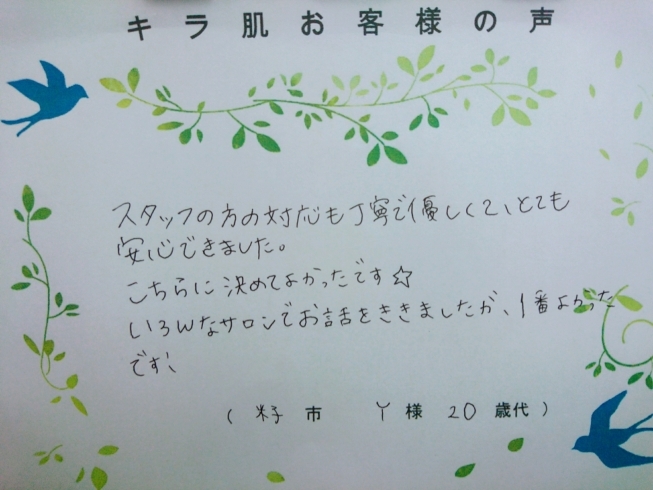 キラ肌お客様の声
スタッフの方の対応も丁寧で優しくて、とても
安心できました。
こちらに決めてよかったです☆
いろんなサロンでお話をききましたが、1番よかった
です!
( 米子 市 Y 様 20 歳代 )